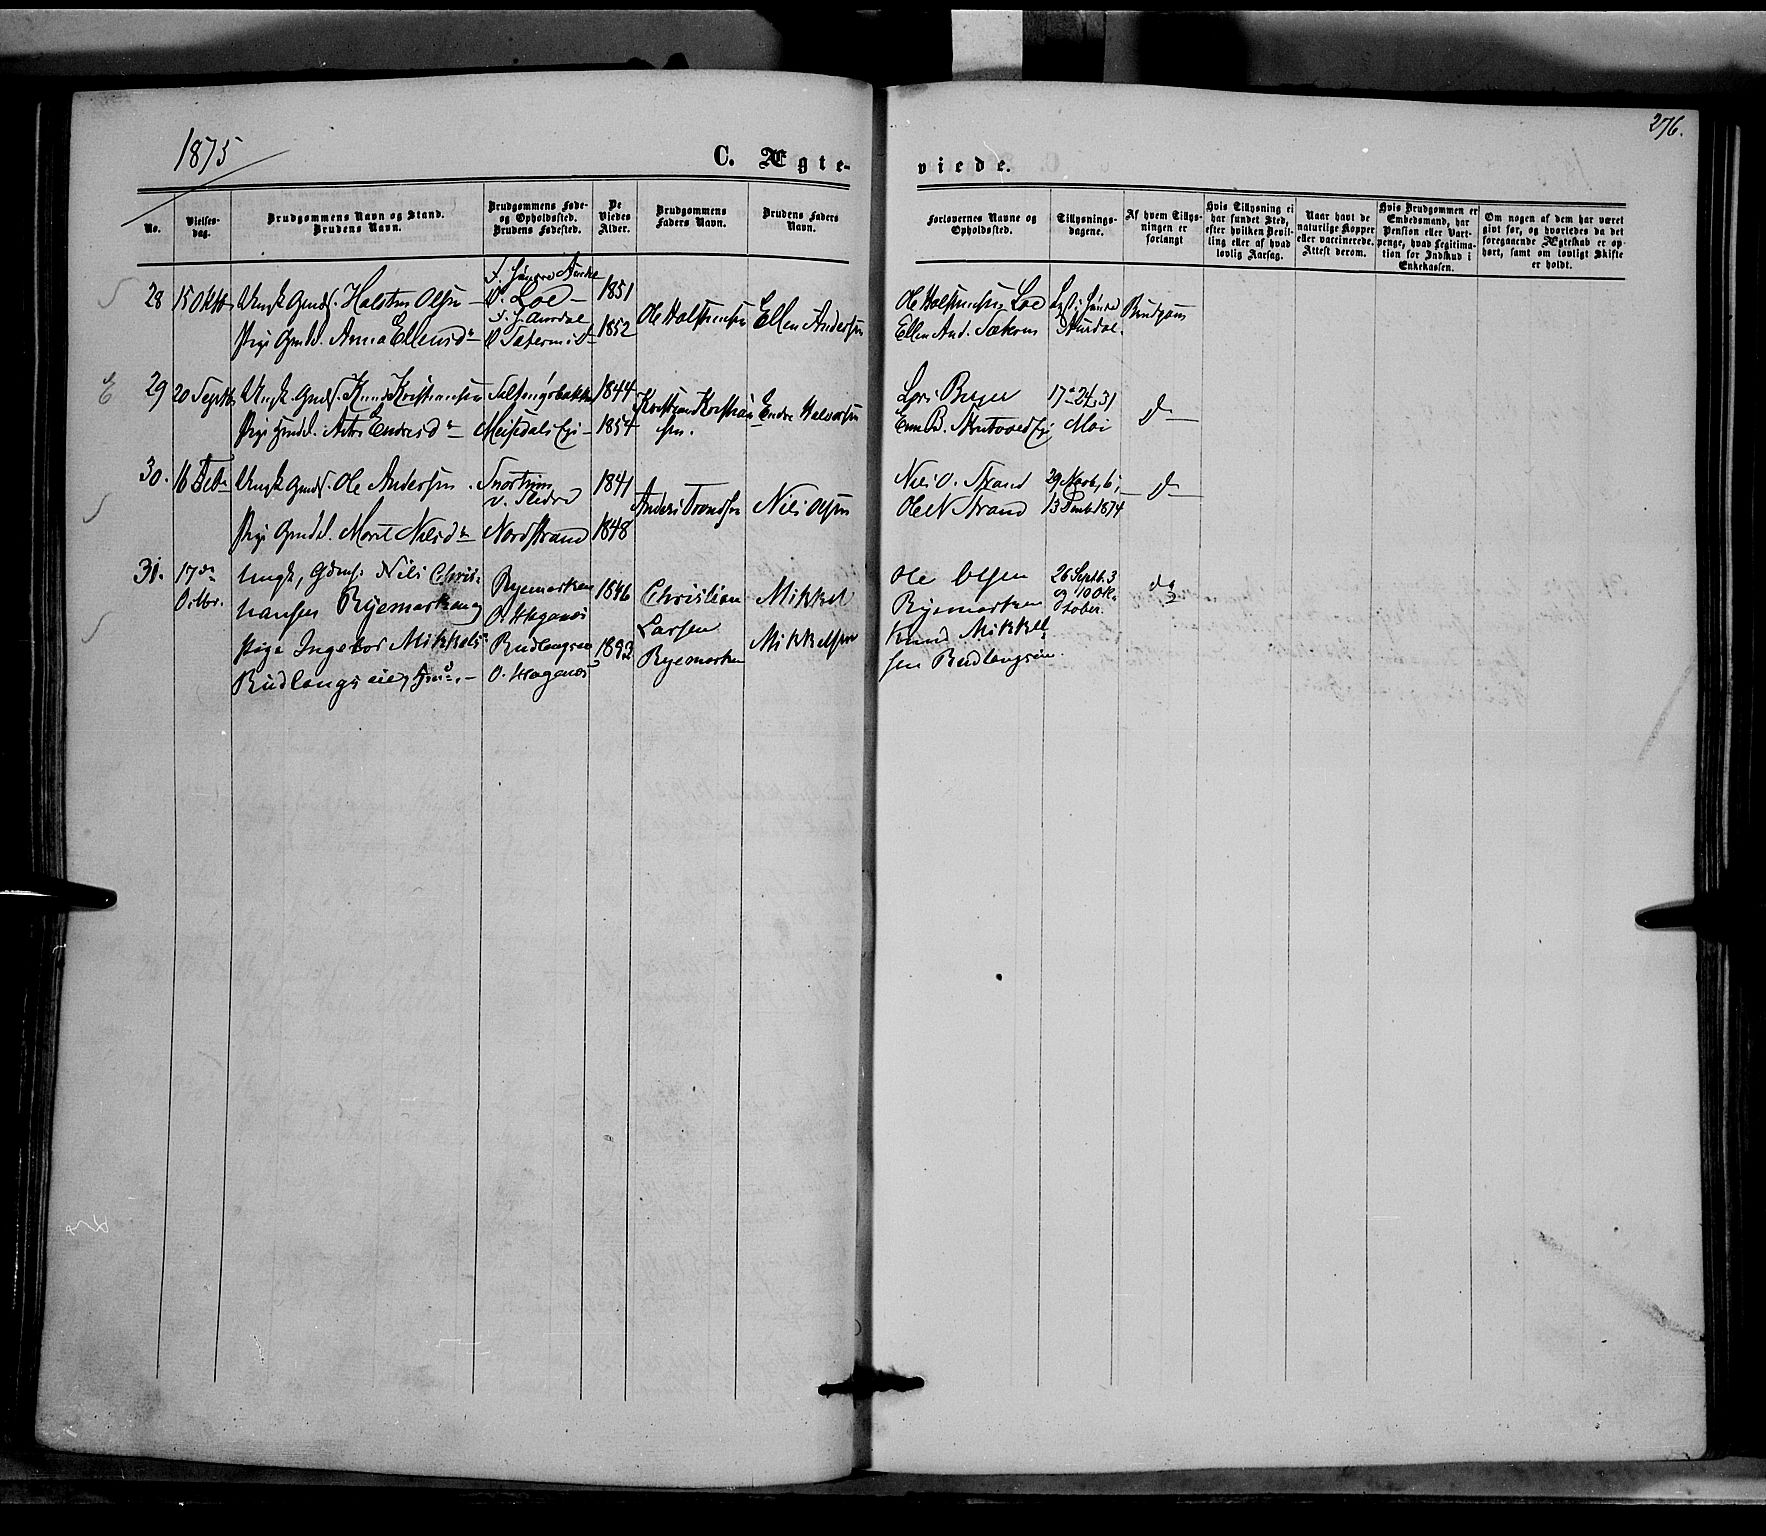 1875
276.
C. Ægte-
viede.
No.
Vielses-
dag.
Brudgommens Navn og Stand.
Brudens Navn.
Brudgommens Føde-
og Opholdssted.
Brudens Fødested.
De
Viedes
Alder.
Brudgommens
Faders Navn.
Brudens Faders
Navn.
Forlovernes Navne og
Opholdssted.
Tillysnings-
dagene.
Af hvem Tillys-
ningen er
forlangt
Hvis Tillysning ei
har fundet Sted,
efter hvilken Bevil-
ling eller af hvad
lovlig Aarsag.
Naar havt de
naturlige Kopper
eller vaccinerede.
Attest derom.
Hvis Brudgommen er
Embedsmand, har
Pension eller Vart-
penge, hvad Legitima-
tion for Indskud i
Enkekassen.
Om nogen af dem har været
gift før, og hvorledes da det
foregaaende Ægteskab er op-
hørt, samt om lovligt Skifte
er holdt.
28
15 Oktb
Ungk. Gmds. Halsten Olsen
Pige Gmdd. Anna Ellensd
V. Loe
1851
1852
Ole Halstensen
Ellen Andersen
Ole Halstensen Loe
Ellen And.
Aurdal.
Brudgom
29
20 Septb
Ungk. Gmds. Knud Kristiansen
Pige Endresd
1844
1854
Kristian Kristian
sen.
Endre Halvorsen
17 24 31
Mai
d
30.
16 Feb
Ungk. Gmds. Ole Andersen
Pige Gmdd. Marit Nielsd
V. Slidre
Nordstrand
1841
1848
Anders Trondsen
Niels Olsen
Niels O. Strand
Ole N Strand
29 6
13 1874
d
31.
17de
Octbr.
Ungk, Gdms: Nils Chris-
tiansen Ryemarkeneg
Pige Ingebor Mikkels
Budlangseie
Ryemarken
Ø. Haganes
Budlangseie
Ø. Haganes
1846
1893
Christian
Larsen
Ryemarken
Mikkel
Mikkelsen
Ole Olsen
Ryemarken
Knud Mikkel
sen Budlangseie.
26 Septb. 3
og 10 Ok-
tober.